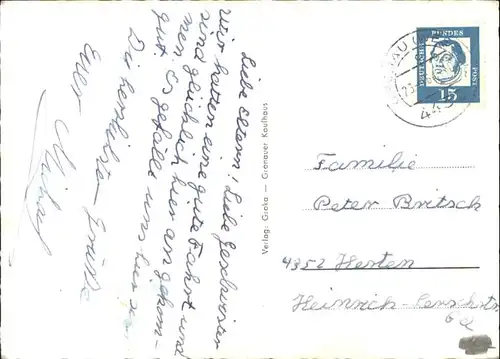 Liebe Eltern! Liebe Geschwister
Wir hatten eine gute Fahrt und
sind glücklich hier angekom-
men. Es gefällt uns hier se
gut.
Die herzlichsten Grüße
Euer Michael
Verlag: Groka — Gronauer Kaufhaus
DEUTSCHE BUNDES POST
15
Familie
Peter Britsch
4352 Herten
Heinrich-Lerschstr.
6a